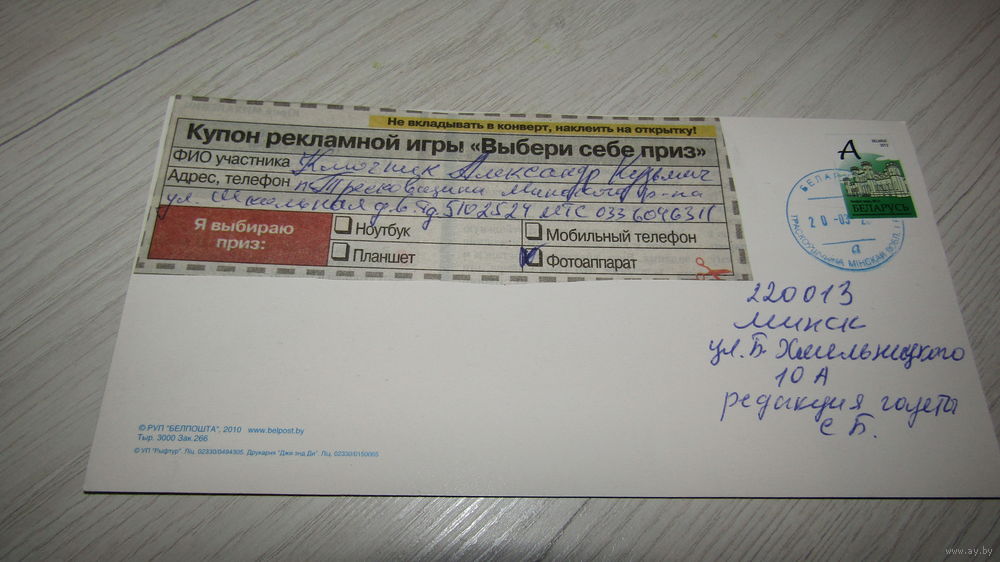 Не вкладывать в конверт, наклеить на открытку!
Купон рекламной игры «Выбери себе приз»
ФИО участника Ключник Александр Кузьмич
Адрес, телефон п. Прасковащина Минского р-на
ул. Школьная д. 5102524 МТС 033 6046311
Я выбираю
приз:
Ноутбук
Мобильный телефон
Планшет
Фотоаппарат
А
БЕЛАРУСЬ
20-03
МІНСКАЙ ВОБЛ.
а
220013
Минск
ул. Б. Хмельницкого
10 А
редакция газеты
С Б.
© РУП "БЕЛПОШТА", 2010 www.belpost.by
Тыр. 3000 Зак.266
© УП "Рыфтур". Ліц. 02330/0494305. Друкарня "Джи энд Ди". Ліц. 02330/0150065
www.ay.by